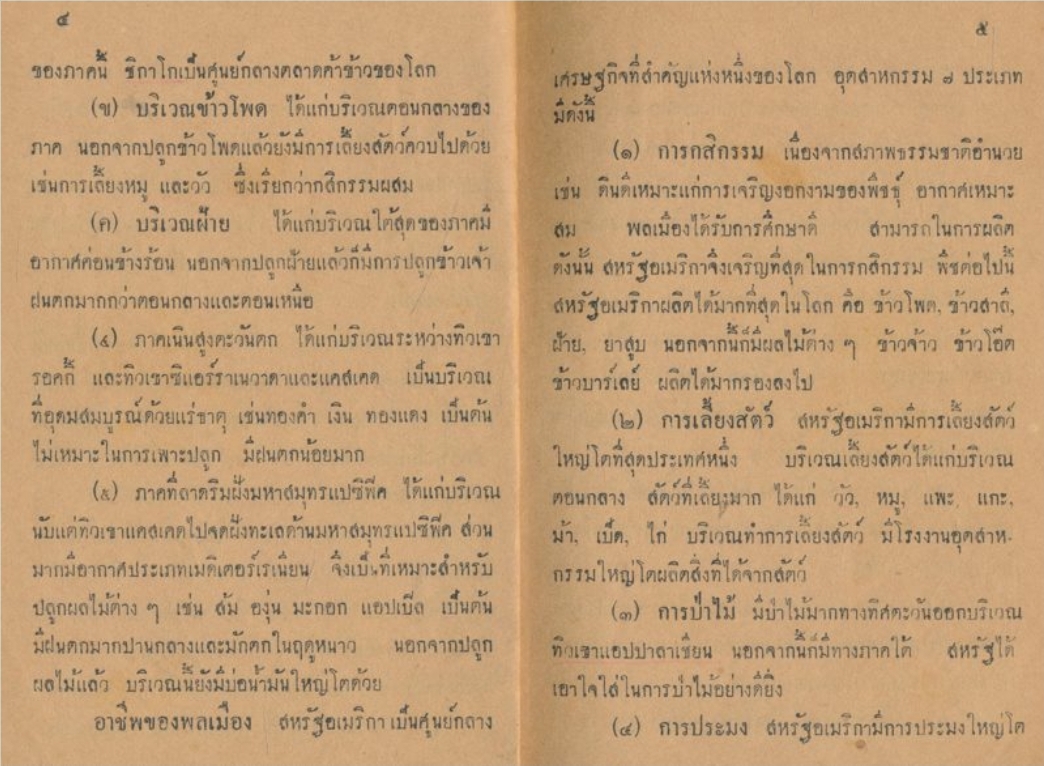 ๔
ของภาคนี้ ชิกาโกเป็นศูนย์กลางตลาดค้าข้าวของโลก
(ข) บริเวณข้าวโพด ได้แก่บริเวณตอนกลางของ
ภาค นอกจากปลูกข้าวโพดแล้วยังมีการเลี้ยงสัตว์ควบไปด้วย
เช่นการเลี้ยงหมู และวัว ซึ่งเรียกว่ากสิกรรมผสม
(ค) บริเวณฝ้าย ได้แก่บริเวณใต้สุดของภาคมี
อากาศค่อนข้างร้อน นอกจากปลูกฝ้ายแล้วก็มีการปลูกข้าวเจ้า
ฝนตกมากกว่าตอนกลางและตอนเหนือ
(๔) ภาคเนินสูงตะวันตก ได้แก่บริเวณระหว่างทิวเขา
รอคกี้ และทิวเขาซิแอร์ราเนวาดาและแคสเคด เป็นบริเวณ
ที่อุดมสมบูรณ์ด้วยแร่ธาตุ เช่นทองคำ เงิน ทองแดง เป็นต้น
ไม่เหมาะในการเพาะปลูก มีฝนตกน้อยมาก
(๕) ภาคที่ลาดริมฝั่งมหาสมุทรแปซิฟิค ได้แก่บริเวณ
นับแต่ทิวเขาแคสเคดไปจดฝั่งทะเลด้านมหาสมุทรแปซิฟิค ส่วน
มากมีอากาศประเภทเมดิเตอร์เรเนียน จึงเป็นที่เหมาะสำหรับ
ปลูกผลไม้ต่าง ๆ เช่น ส้ม องุ่น มะกอก แอปเปิล เป็นต้น
มีฝนตกมากปานกลางและมักตกในฤดูหนาว นอกจากปลูก
ผลไม้แล้ว บริเวณนี้ยังมีบ่อน้ำมันใหญ่โตด้วย
อาชีพของพลเมือง สหรัฐอเมริกา เป็นศูนย์กลาง
๕
เศรษฐกิจที่สำคัญแห่งหนึ่งของโลก อุตสาหกรรม ๗ ประเภท
มีดังนี้
(๑) การกสิกรรม เนื่องจากสภาพธรรมชาติอำนวย
เช่น ดินดีเหมาะแก่การเจริญงอกงามของพืชชุ์ อากาศเหมาะ
สม พลเมืองได้รับการศึกษาดี สามารถในการผลิต
ดังนั้น สหรัฐอเมริกาจึงเจริญที่สุดในการกสิกรรม พืชต่อไปนี้
สหรัฐอเมริกาผลิตได้มากที่สุดในโลก คือ ข้าวโพด, ข้าวสาลี,
ฝ้าย, ยาสูบ นอกจากนี้ก็มีผลไม้ต่าง ๆ ข้าวจ้าว ข้าวโอ๊ต
ข้าวบาร์เลย์ ผลิตได้มากรองลงไป
(๒) การเลี้ยงสัตว์ สหรัฐอเมริกามีการเลี้ยงสัตว์
ใหญ่โตที่สุดประเทศหนึ่ง บริเวณเลี้ยงสัตว์ได้แก่บริเวณ
ตอนกลาง สัตว์ที่เลี้ยงมาก ได้แก่ วัว, หมู, แพะ, แกะ,
ม้า, เป็ด, ไก่ บริเวณทำการเลี้ยงสัตว์ มีโรงงานอุตสาห-
กรรมใหญ่โตผลิตสิ่งที่ได้จากสัตว์
(๓) การป่าไม้ มีป่าไม้มากทางทิศตะวันออกบริเวณ
ทิวเขาแอปปาลาเชียน นอกจากนี้ก็มีทางภาคใต้ สหรัฐได้
เอาใจใส่ในการป่าไม้อย่างดียิ่ง
(๔) การประมง สหรัฐอเมริกามีการประมงใหญ่โต